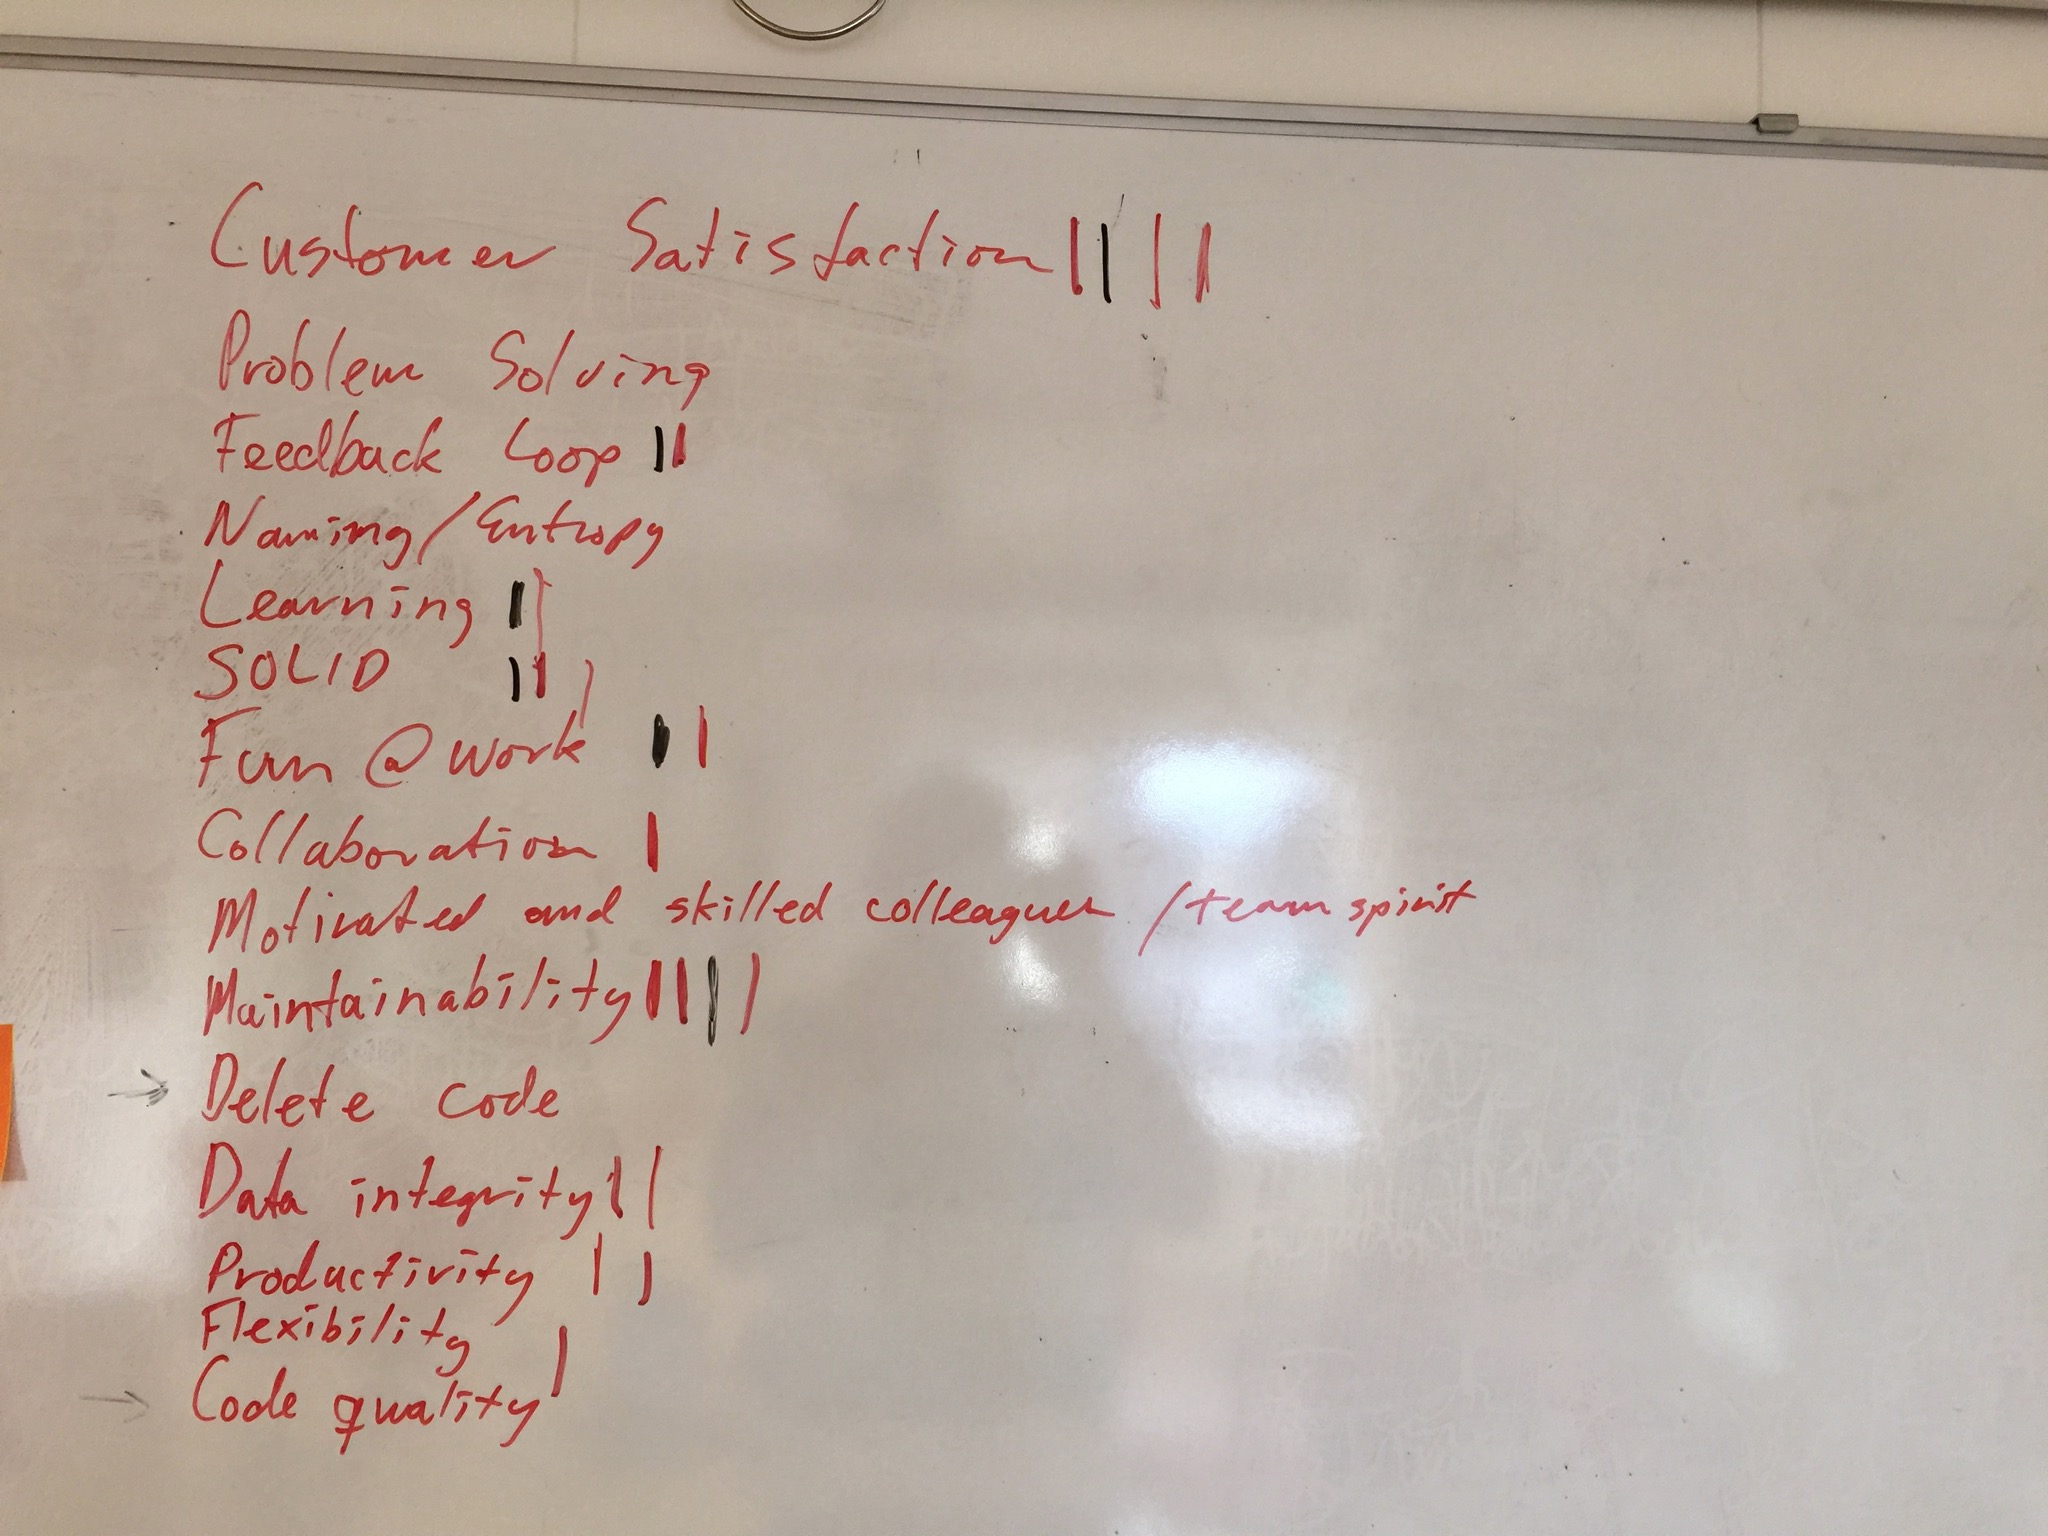 Customer Satisfaction ||||
Problem Solving
Feedback Loop ||
Naming/Entropy
Learning ||
SOLID |||
Fun @ work ||
Collaboration |
Motivated and skilled colleagues / team spirit
Maintainability ||||
→ Delete code
Data integrity ||
Productivity ||
Flexibility
→ Code quality |